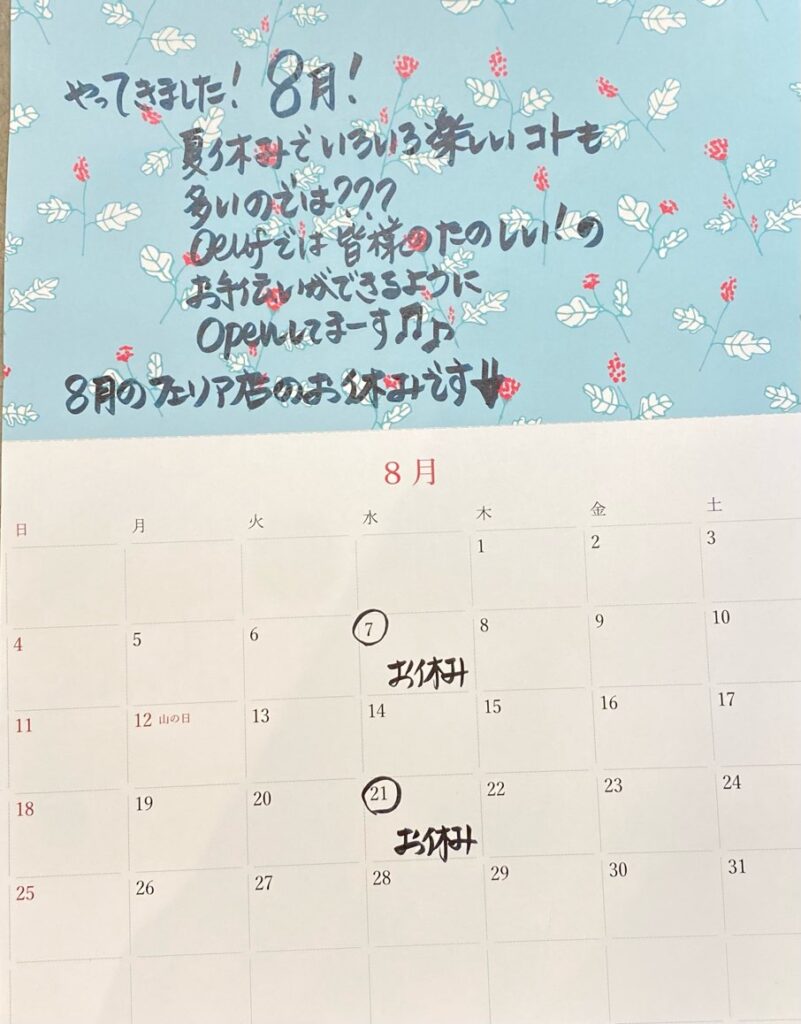 やってきました！ 8月！
夏休みでいろいろ楽しいコトも
多いのでは???
Oeufでは皆様のたのしい！の
お手伝いができるように
Openしてまーす♫♪
8月のフェリア店のお休みです↓
8月
日 月 火 水 木 金 土
1 2 3
4 5 6 7 8 9 10
お休み
11 12 山の日 13 14 15 16 17
18 19 20 21 22 23 24
お休み
25 26 27 28 29 30 31